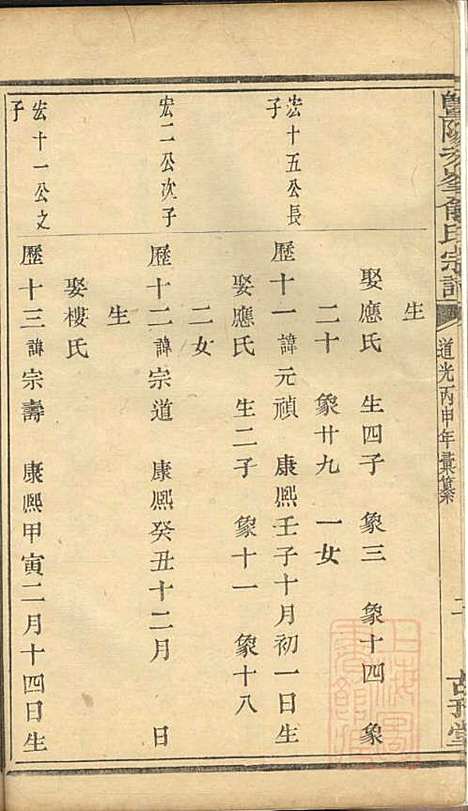 暨陽
峯俞氏宗譜
道光丙申年彙纂
二
古
堂
生
娶應氏 生四子 象三 象十四 象
二十 象廿九 一女
宏十五公長
子
歷十一諱元禎 康熙壬子十月初一日生
娶應氏 生二子 象十一 象十八
二女
宏二公次子
歷十二諱宗道 康熙癸丑十二月 日
生
娶樓氏
宏十一公之
子
歷十三諱宗壽 康熙甲寅二月十四日生